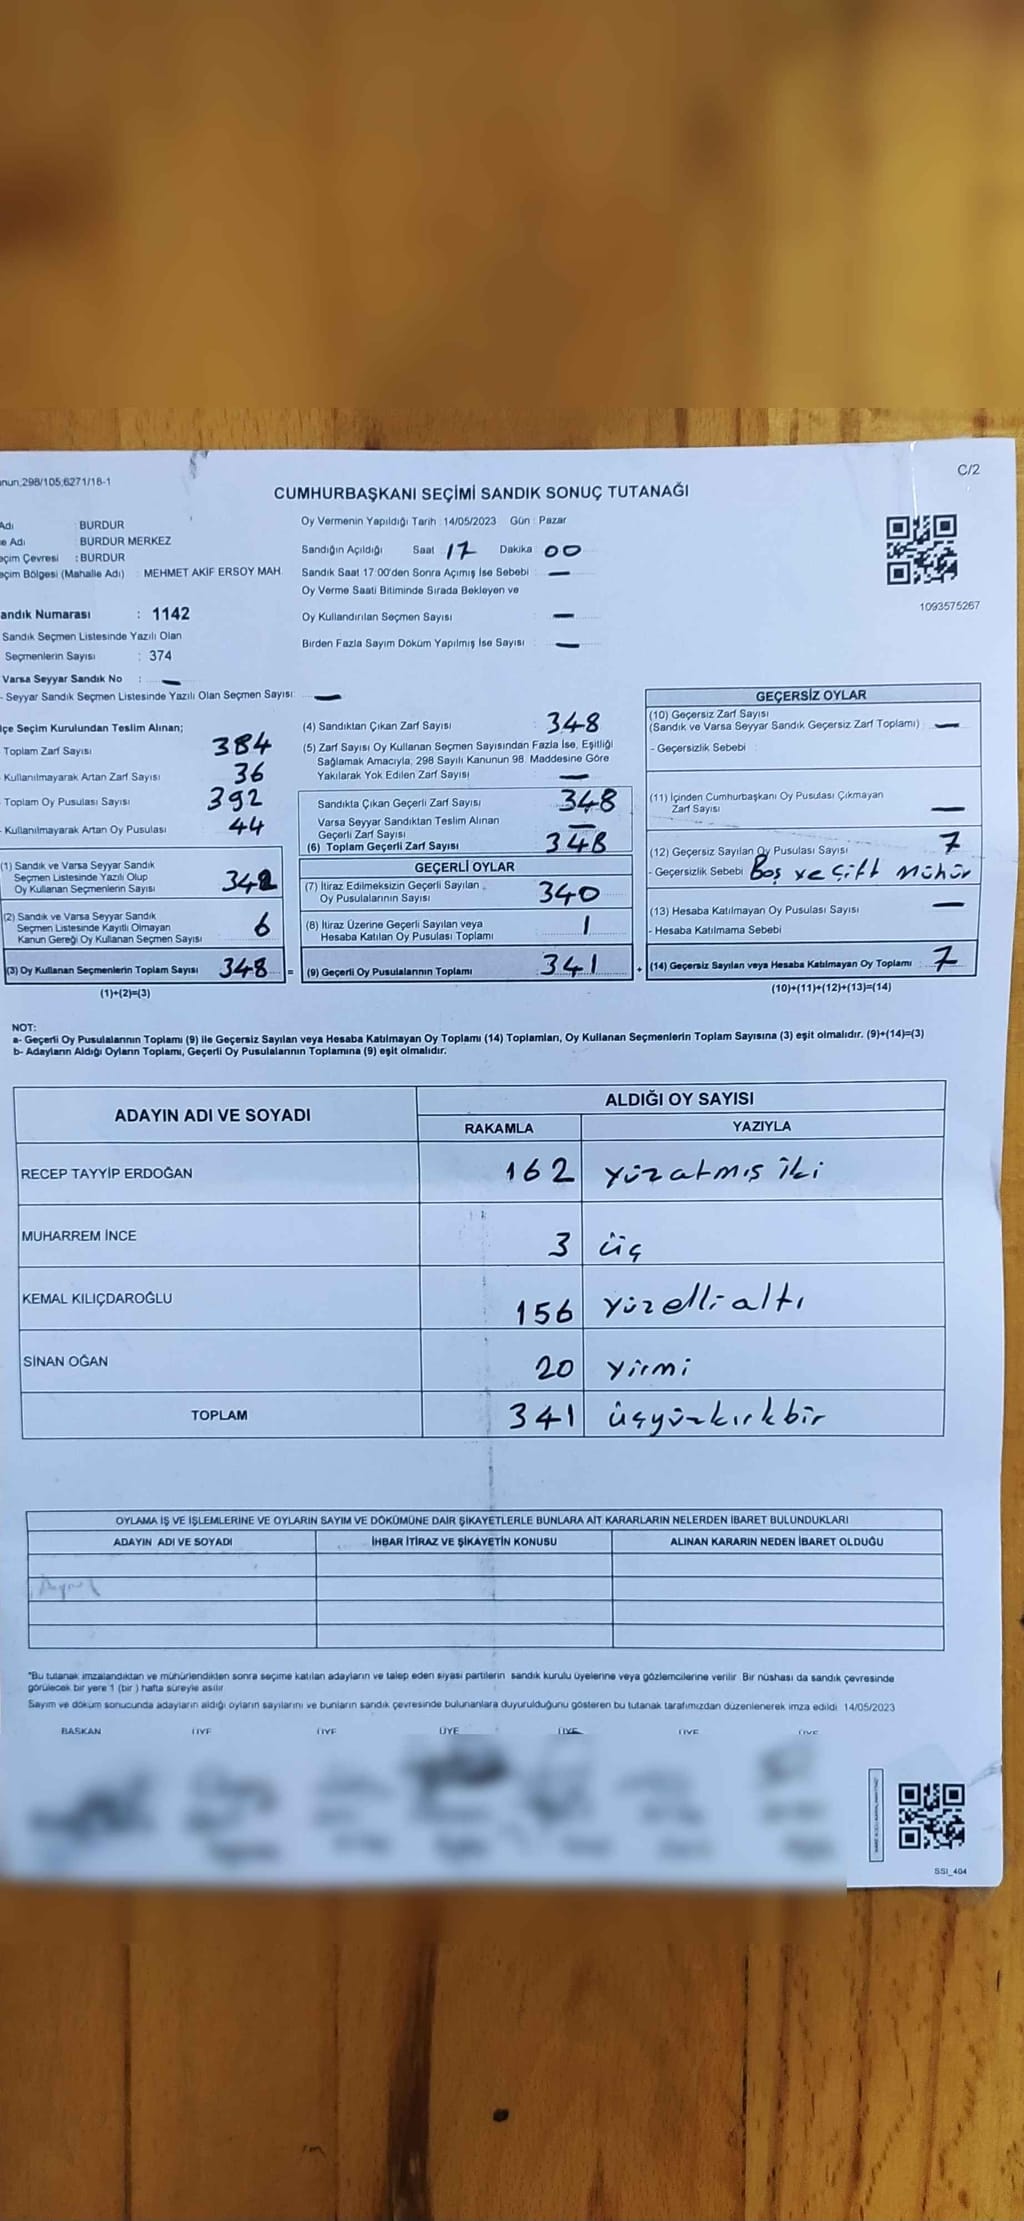 nun,298/105;6271/18-1
C/2
CUMHURBAŞKANI SEÇİMİ SANDIK SONUÇ TUTANAĞI
Adı : BURDUR
e Adı : BURDUR MERKEZ
eçim Çevresi : BURDUR
eçim Bölgesi (Mahalle Adı) : MEHMET AKİF ERSOY MAH.
andık Numarası : 1142
Sandık Seçmen Listesinde Yazılı Olan
Seçmenlerin Sayısı : 374
Varsa Seyyar Sandık No : —
- Seyyar Sandık Seçmen Listesinde Yazılı Olan Seçmen Sayısı: —
Oy Vermenin Yapıldığı Tarih : 14/05/2023 Gün : Pazar
Sandığın Açıldığı Saat 17 Dakika 00
Sandık Saat 17:00'den Sonra Açımış İse Sebebi : —
Oy Verme Saati Bitiminde Sırada Bekleyen ve
Oy Kullandırılan Seçmen Sayısı : —
Birden Fazla Sayım Döküm Yapılmış İse Sayısı : —
1093575267
lçe Seçim Kurulundan Teslim Alınan;
Toplam Zarf Sayısı 384
- Kullanılmayarak Artan Zarf Sayısı 36
- Toplam Oy Pusulası Sayısı 392
- Kullanılmayarak Artan Oy Pusulası 44
(1) Sandık ve Varsa Seyyar Sandık
Seçmen Listesinde Yazılı Olup
Oy Kullanan Seçmenlerin Sayısı 342
(2) Sandık ve Varsa Seyyar Sandık
Seçmen Listesinde Kayıtlı Olmayan
Kanun Gereği Oy Kullanan Seçmen Sayısı 6
(3) Oy Kullanan Seçmenlerin Toplam Sayısı 348 =
(1)+(2)=(3)
(4) Sandıktan Çıkan Zarf Sayısı : 348
(5) Zarf Sayısı Oy Kullanan Seçmen Sayısından Fazla İse, Eşitliği
Sağlamak Amacıyla, 298 Sayılı Kanunun 98. Maddesine Göre
Yakılarak Yok Edilen Zarf Sayısı —
Sandıkta Çıkan Geçerli Zarf Sayısı 348
Varsa Seyyar Sandıktan Teslim Alınan
Geçerli Zarf Sayısı —
(6) Toplam Geçerli Zarf Sayısı 348
GEÇERLİ OYLAR
(7) İtiraz Edilmeksizin Geçerli Sayılan
Oy Pusulalarının Sayısı 340
(8) İtiraz Üzerine Geçerli Sayılan veya
Hesaba Katılan Oy Pusulası Toplamı 1
(9) Geçerli Oy Pusulalarının Toplamı 341 +
GEÇERSİZ OYLAR
(10) Geçersiz Zarf Sayısı
(Sandık ve Varsa Seyyar Sandık Geçersiz Zarf Toplamı) : —
- Geçersizlik Sebebi :
(11) İçinden Cumhurbaşkanı Oy Pusulası Çıkmayan
Zarf Sayısı —
(12) Geçersiz Sayılan Oy Pusulası Sayısı 7
- Geçersizlik Sebebi Boş ve Çift Mühür
(13) Hesaba Katılmayan Oy Pusulası Sayısı —
- Hesaba Katılmama Sebebi
(14) Geçersiz Sayılan veya Hesaba Katılmayan Oy Toplamı : 7
(10)+(11)+(12)+(13)=(14)
NOT:
a- Geçerli Oy Pusulalarının Toplamı (9) ile Geçersiz Sayılan veya Hesaba Katılmayan Oy Toplamı (14) Toplamları, Oy Kullanan Seçmenlerin Toplam Sayısına (3) eşit olmalıdır. (9)+(14)=(3)
b- Adayların Aldığı Oyların Toplamı, Geçerli Oy Pusulalarının Toplamına (9) eşit olmalıdır.
ADAYIN ADI VE SOYADI ALDIĞI OY SAYISI
RAKAMLA YAZIYLA
RECEP TAYYİP ERDOĞAN 162 yüzatmış iki
MUHARREM İNCE 3 üç
KEMAL KILIÇDAROĞLU 156 yüzelli altı
SİNAN OĞAN 20 yirmi
TOPLAM 341 üçyüzkırkbir
OYLAMA İŞ VE İŞLEMLERİNE VE OYLARIN SAYIM VE DÖKÜMÜNE DAİR ŞİKAYETLERLE BUNLARA AİT KARARLARIN NELERDEN İBARET BULUNDUKLARI
ADAYIN ADI VE SOYADI İHBAR İTİRAZ VE ŞİKAYETİN KONUSU ALINAN KARARIN NEDEN İBARET OLDUĞU
*Bu tutanak imzalandıktan ve mühürlendikten sonra seçime katılan adayların ve talep eden siyasi partilerin sandık kurulu üyelerine veya gözlemcilerine verilir. Bir nüshası da sandık çevresinde
görülecek bir yere 1 (bir ) hafta süreyle asılır
Sayım ve döküm sonucunda adayların aldığı oyların sayılarını ve bunların sandık çevresinde bulunanlara duyurulduğunu gösteren bu tutanak tarafımızdan düzenlenerek imza edildi 14/05/2023
BAŞKAN ÜYE ÜYE ÜYE ÜYE ÜYE ÜYE
SSI_404